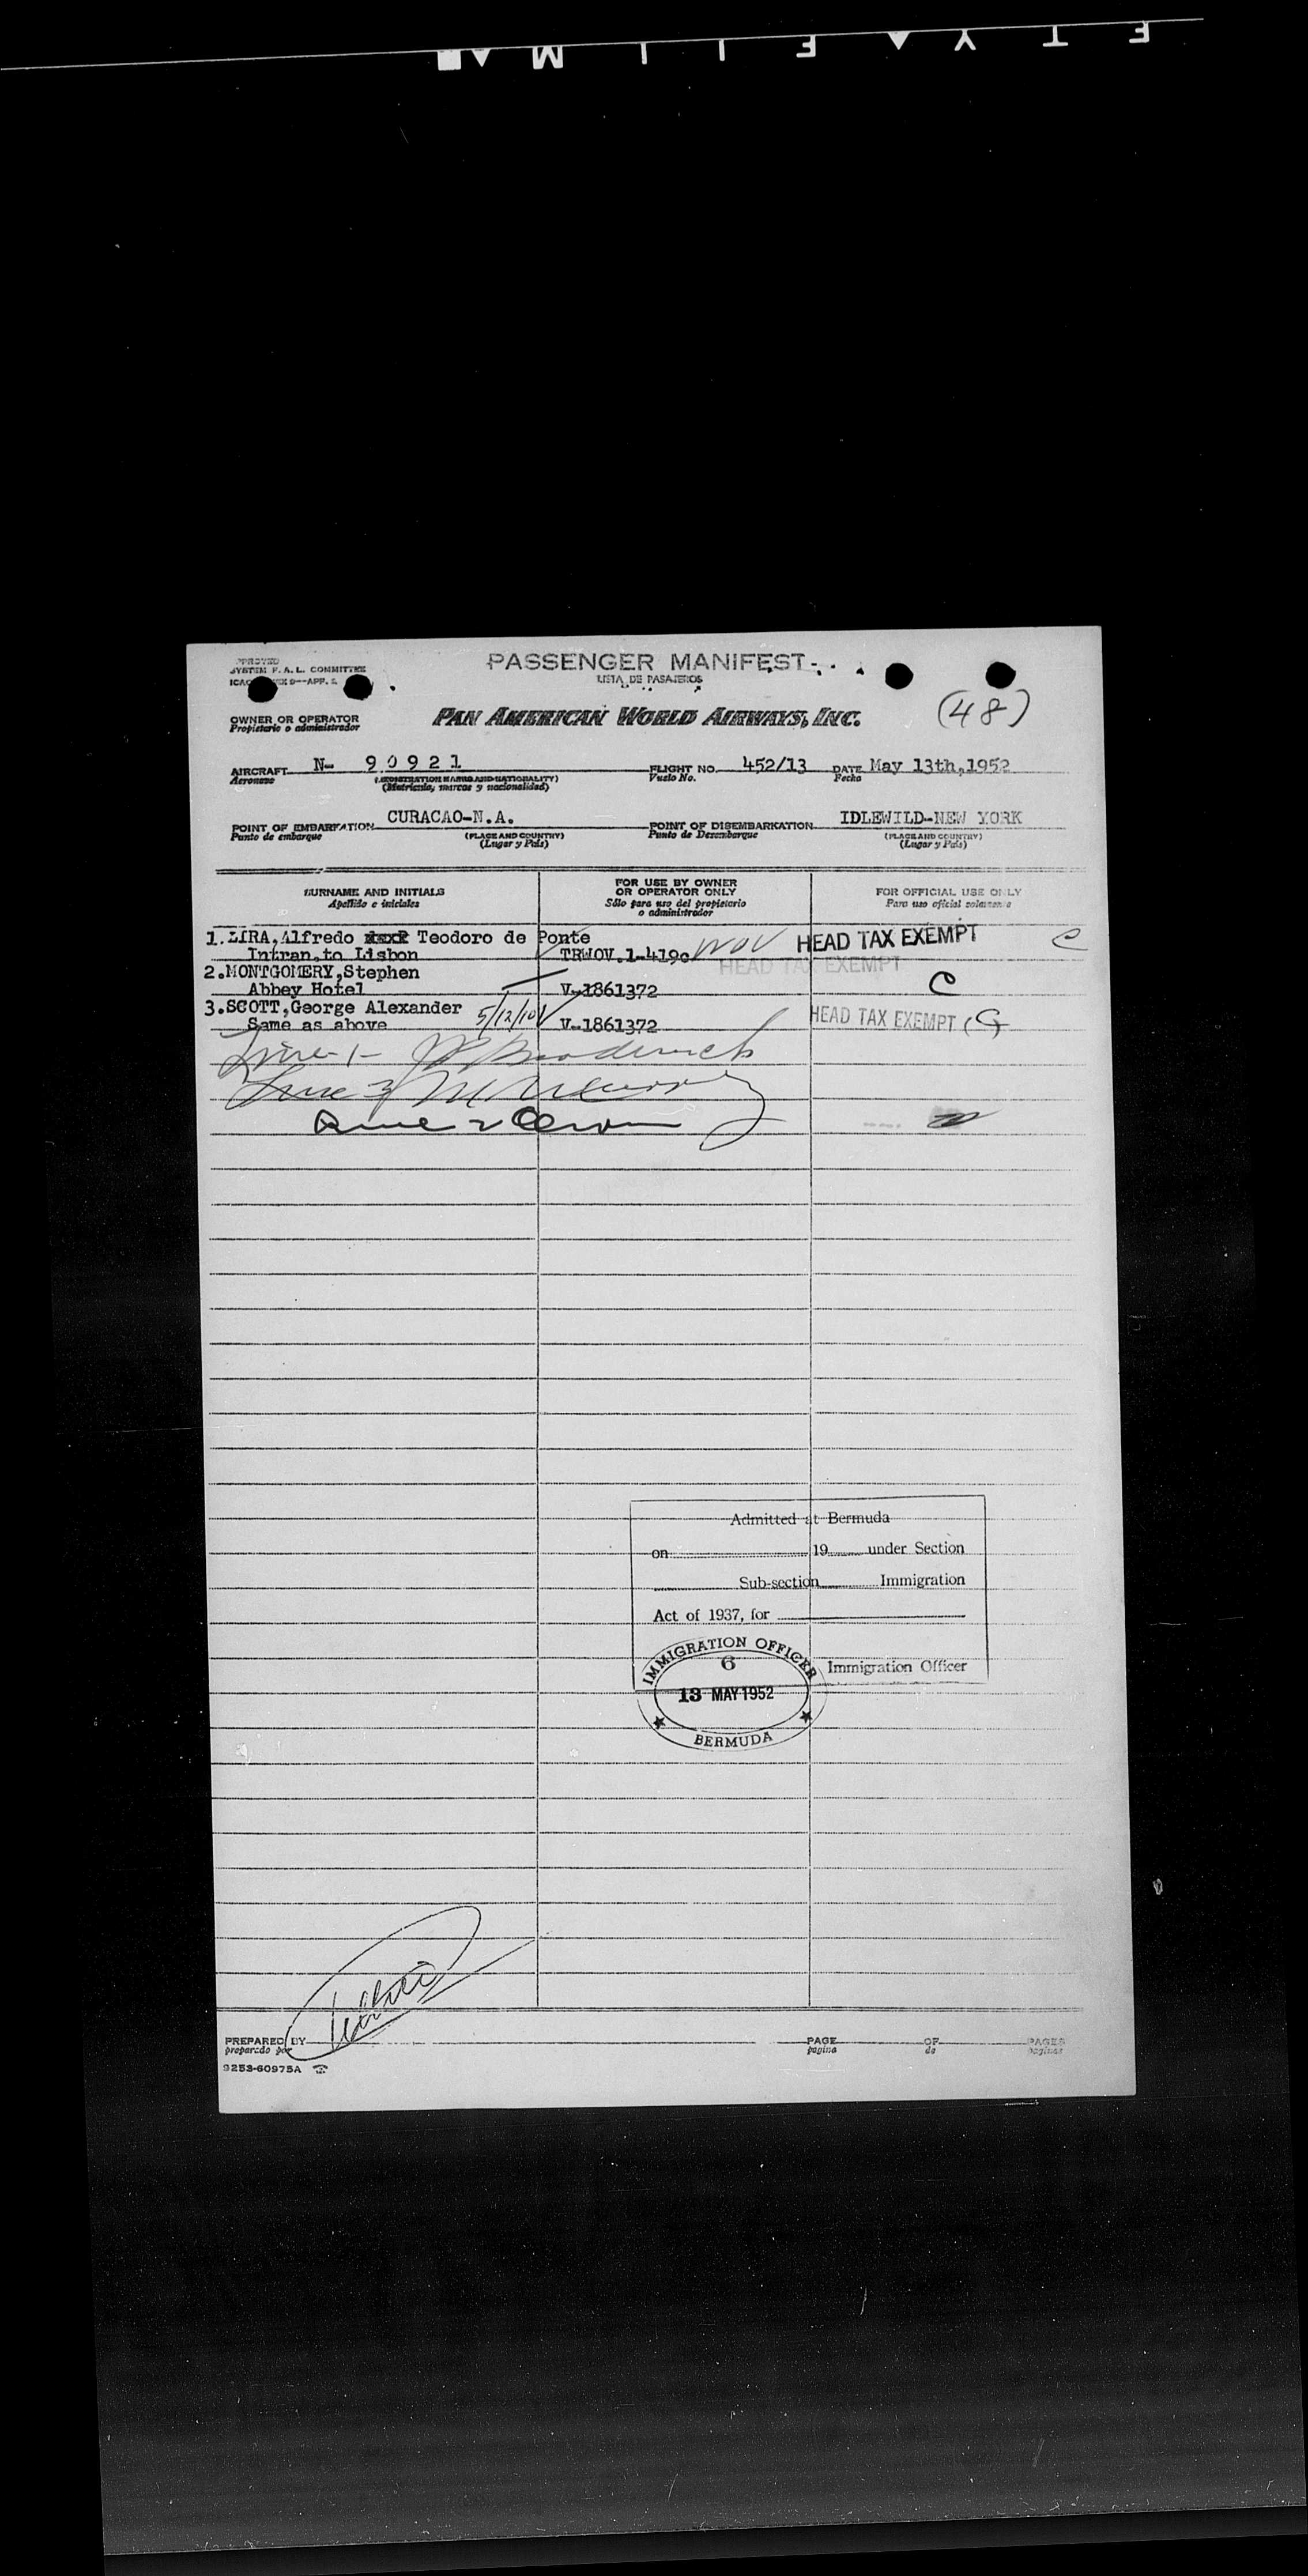 PASSENGER MANIFEST
LISTA DE PASAJEROS
SYSTEM F. A. L. COMMITTEE
(48)
OWNER OR OPERATOR
Propietario o administrador
PAN AMERICAN WORLD AIRWAYS, INC.
AIRCRAFT N- 90921 FLIGHT NO. 452/13 DATE May 13th,1952
Aeronave (REGISTRATION MARKS AND NATIONALITY) Vuelo No. Fecha
(Matricula, marcas y nacionalidad)
POINT OF EMBARKATION CURACAO-N.A. POINT OF DISEMBARKATION IDLEWILD-NEW YORK
Punto de embarque (PLACE AND COUNTRY) Punto de Desembarque (PLACE AND COUNTRY)
(Lugar y País) (Lugar y País)
SURNAME AND INITIALS
Apellido e iniciales
FOR USE BY OWNER
OR OPERATOR ONLY
Sólo para uso del propietario
o administrador
FOR OFFICIAL USE ONLY
Para uso oficial solamente
1.LIRA,Alfredo Teodoro de Ponte HEAD TAX EXEMPT C
Intran.to Lisbon TRWOV.1-419c WOV
2.MONTGOMERY,Stephen HEAD TAX EXEMPT
Abbey Hotel V-1861372 C
3.SCOTT,George Alexander 5/12/10 HEAD TAX EXEMPT (C)
Same as above V-1861372
Line 1- Broderick
Line 3
Line 2
Admitted at Bermuda
on 19 under Section
Sub-section Immigration
Act of 1937, for
Immigration Officer
IMMIGRATION OFFICER
6
13 MAY 1952
BERMUDA
PREPARED BY PAGE OF PAGES
preparado por pagina de paginas
9253-60975A